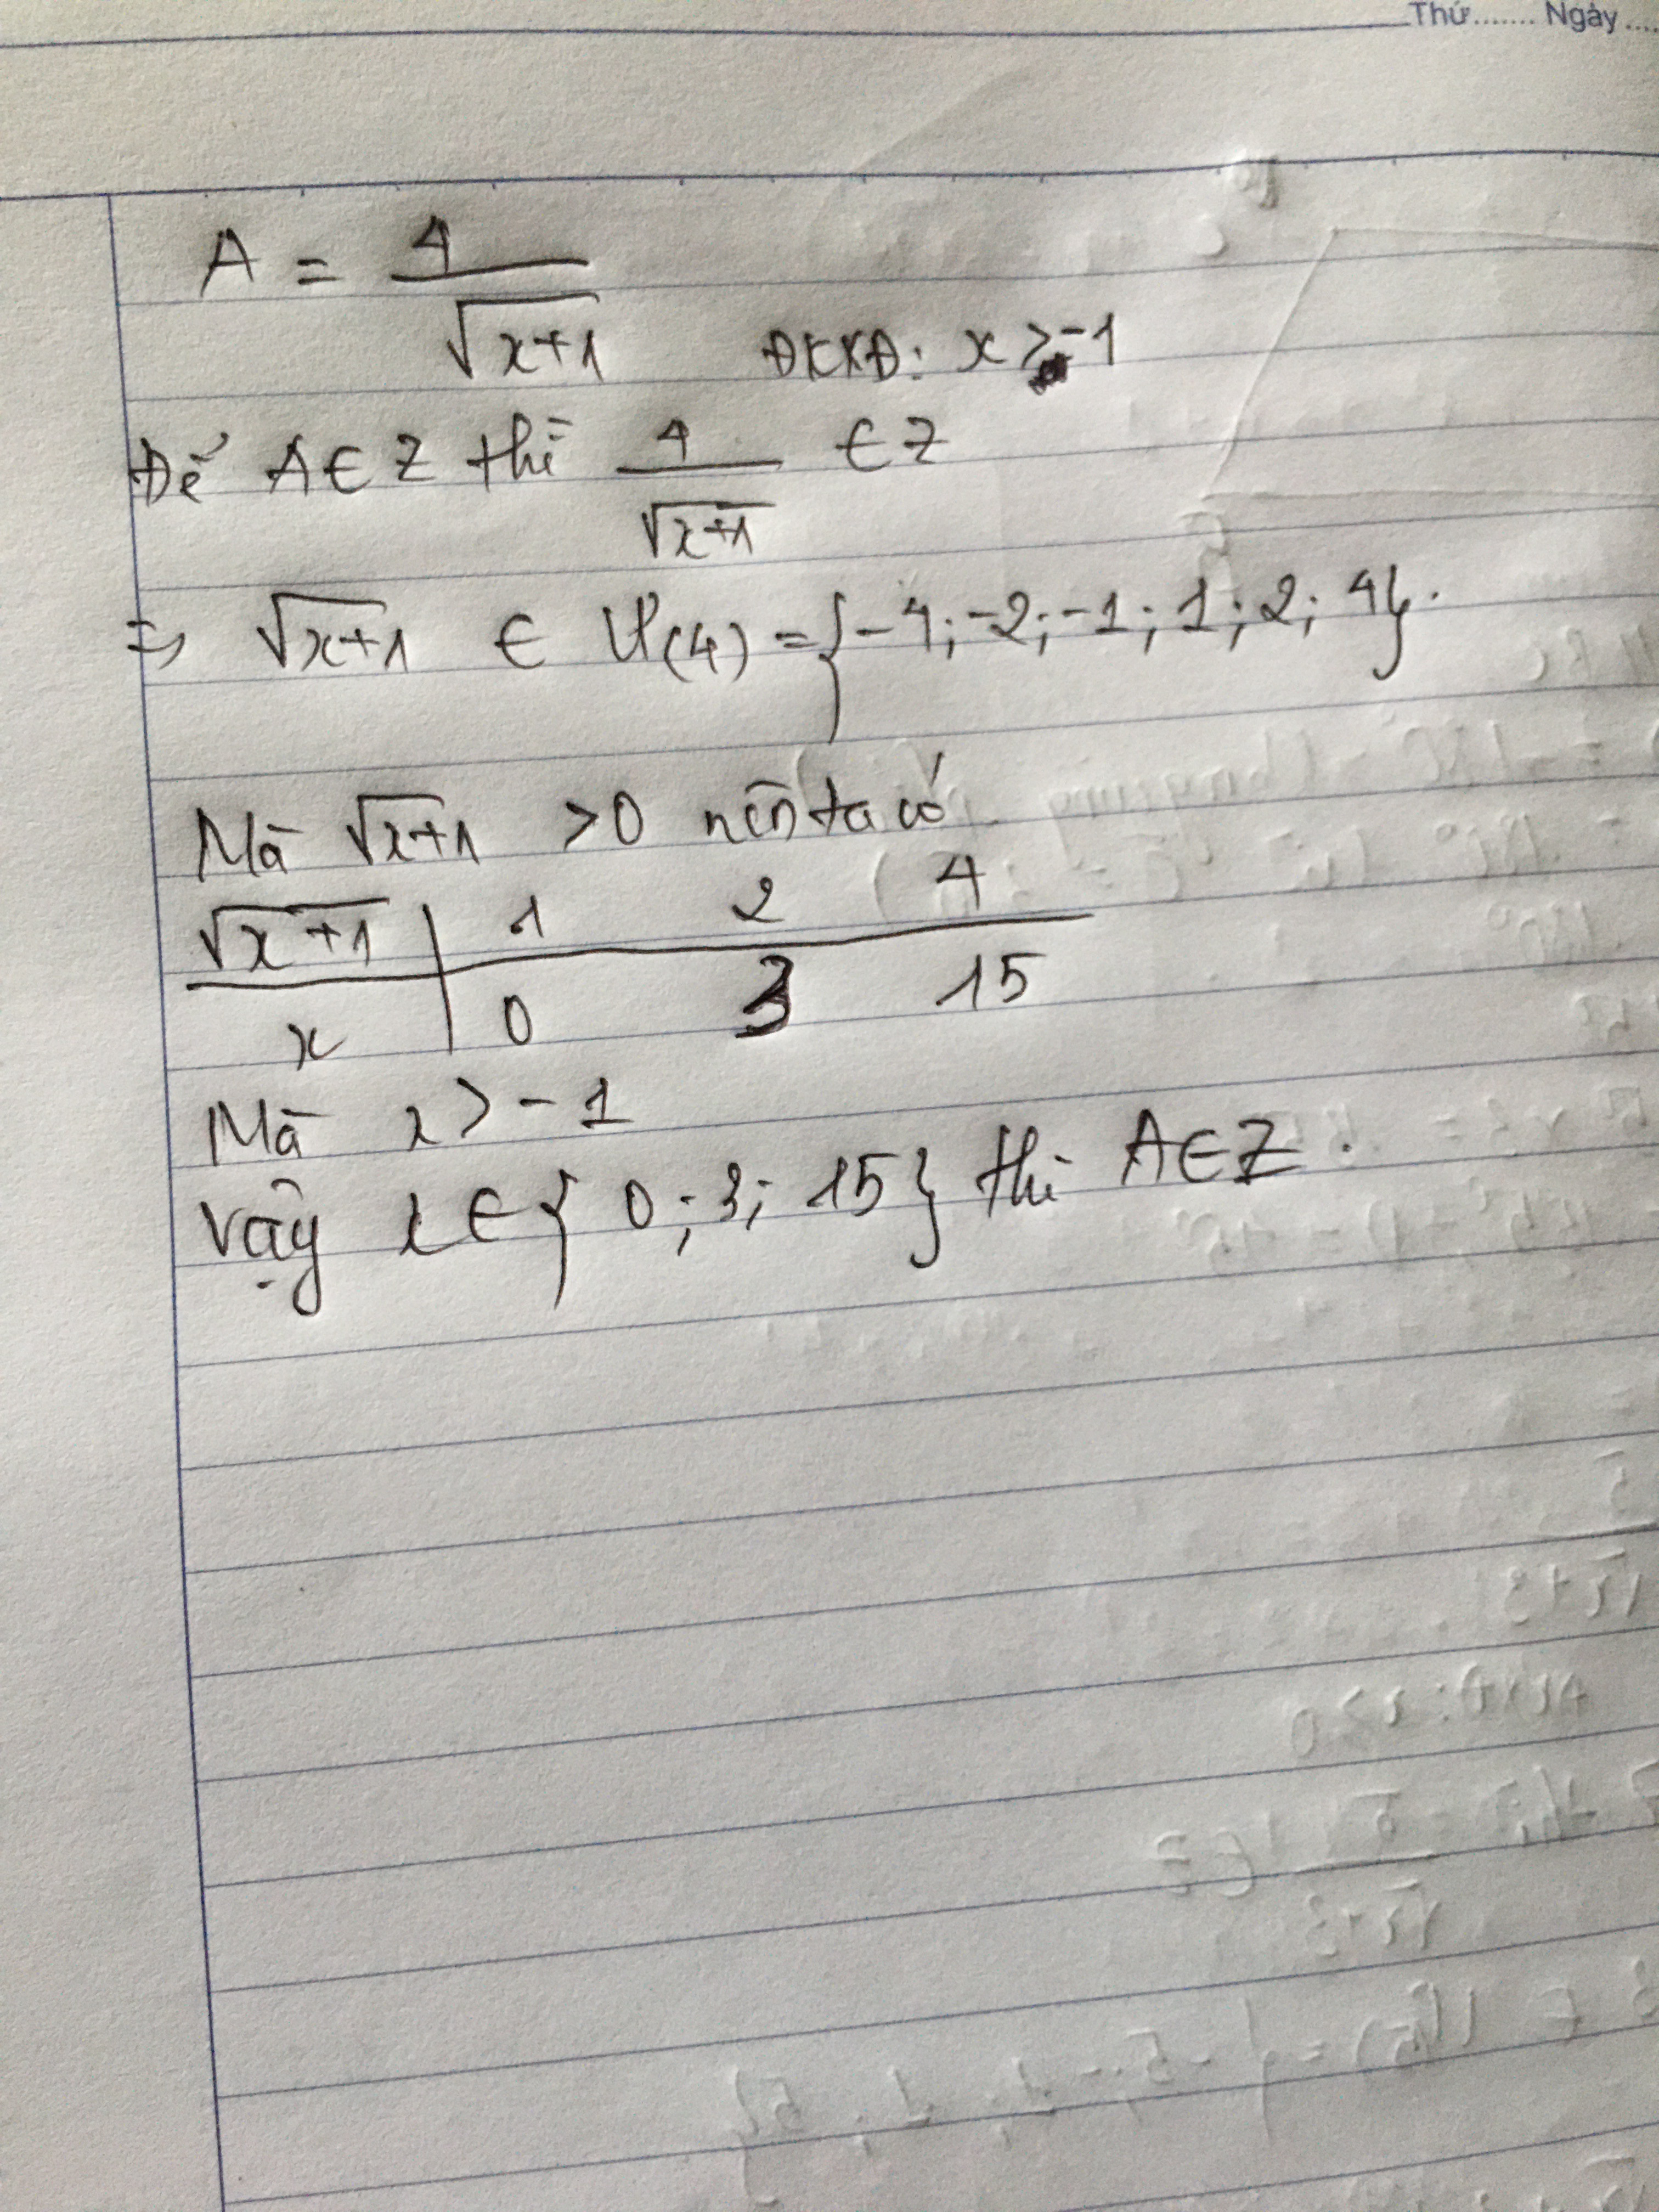 Thứ....... Ngày....
A = 4/√(x+1) ĐKXĐ: x > -1
Để A ∈ Z thì 4/√(x+1) ∈ Z
=> √(x+1) ∈ Ư(4) = {-4; -2; -1; 1; 2; 4}.
Mà √(x+1) > 0 nên ta có
√(x+1) | 1 2 4
x | 0 3 15
Mà x > -1
Vậy x ∈ { 0; 3; 15} thì A ∈ Z.